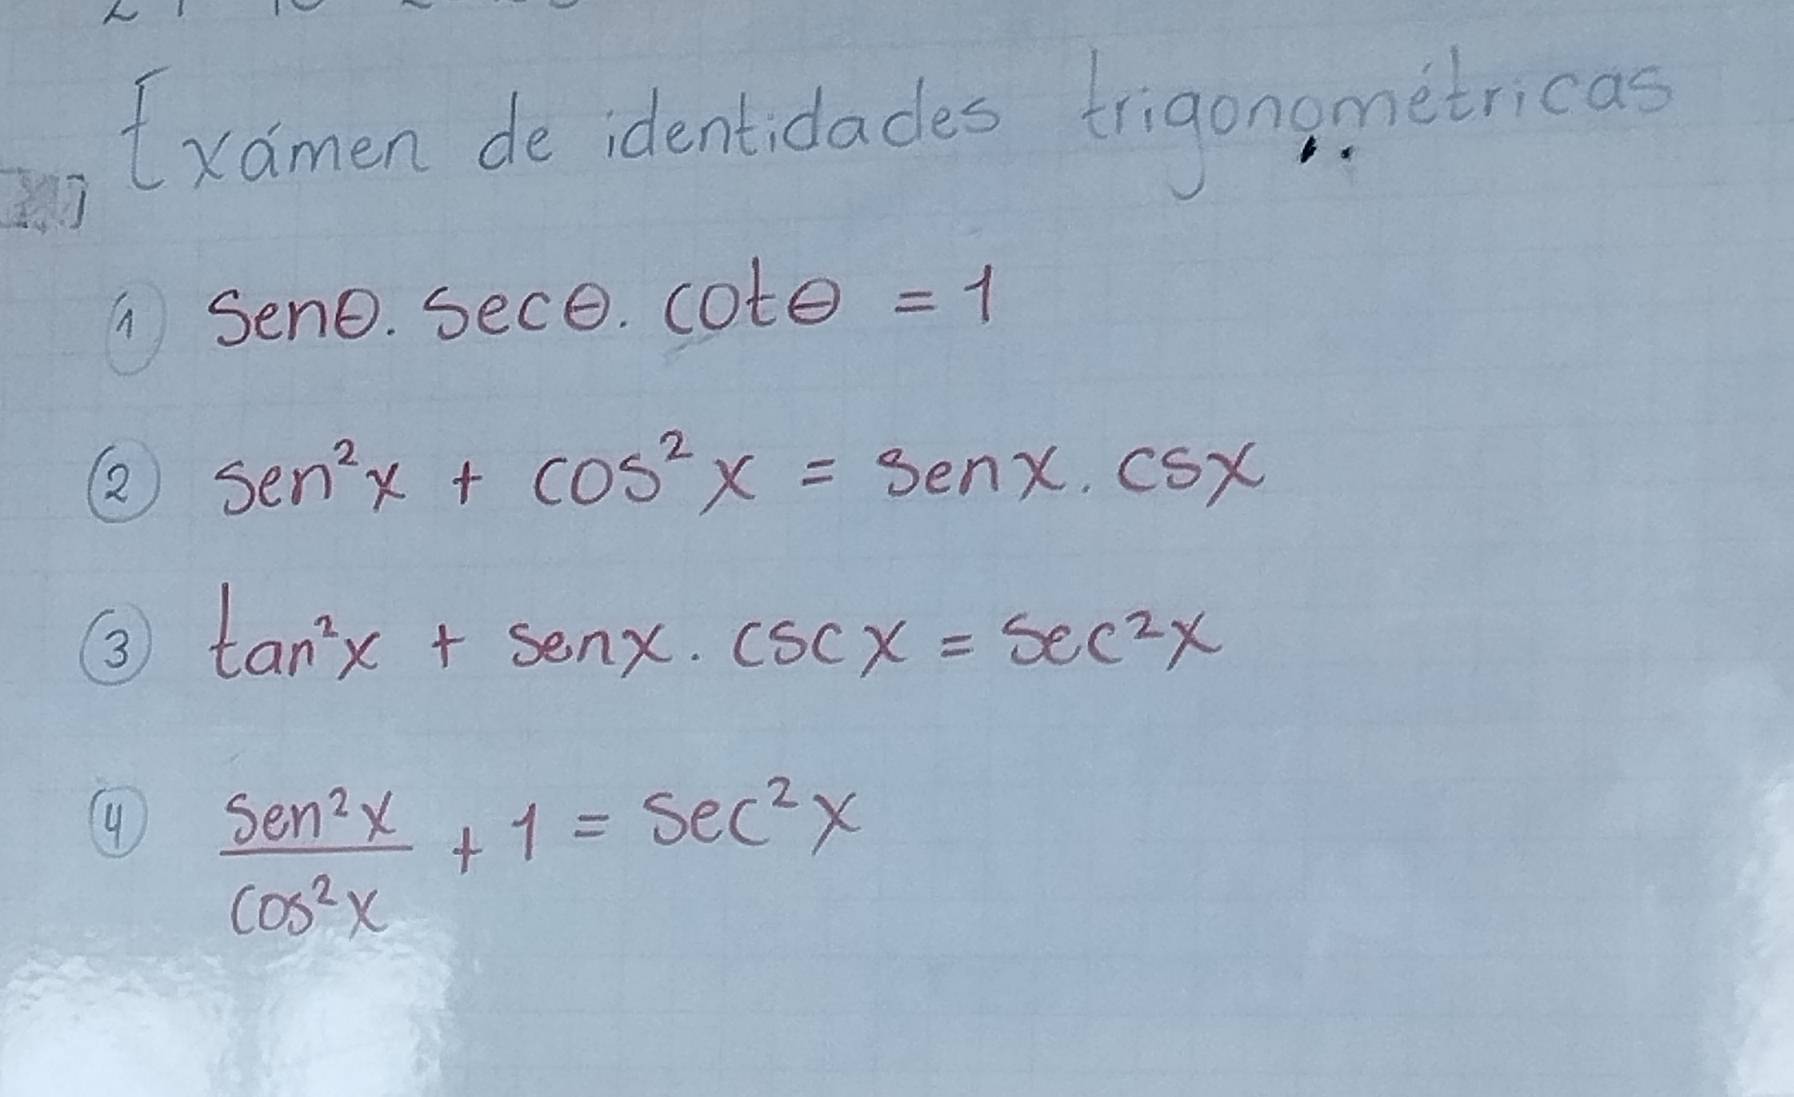 Exámen de identidades trigonométricas
① senθ. secθ. cotθ = 1
② sen²x + cos²x = senx. csx
③ tan²x + senx. cscx = sec²x
④ sen²x/cos²x + 1 = sec²x